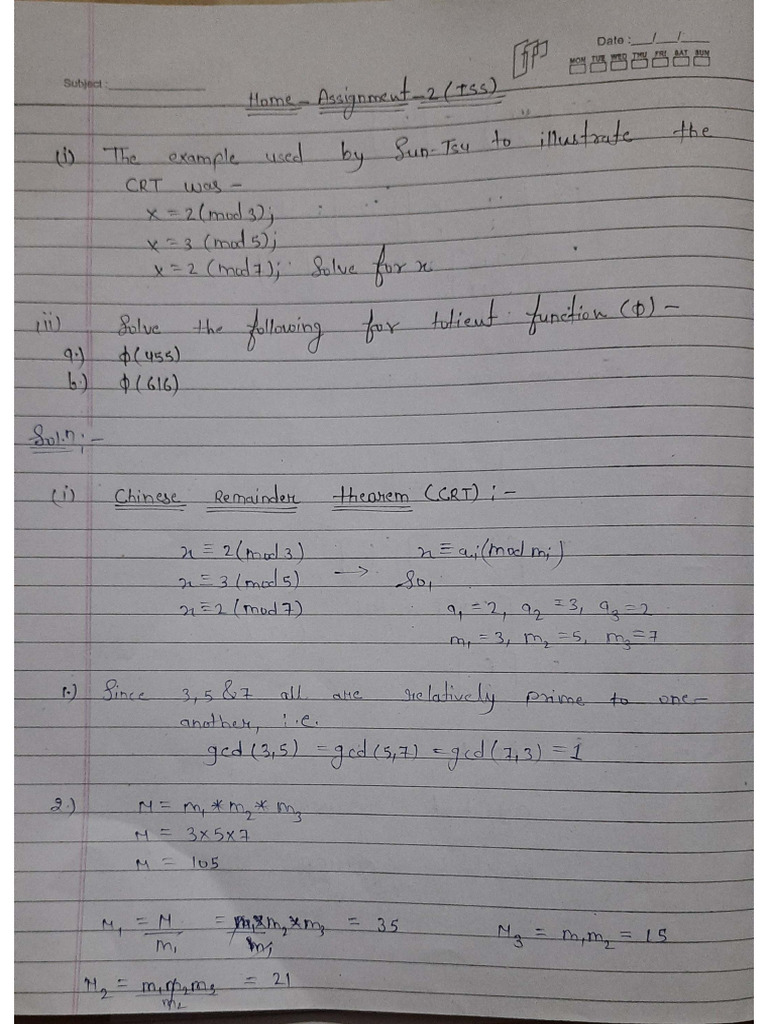 Date: __/__/__
MON TUE WED THU FRI SAT SUN
Subject:
Home - Assignment - 2 (TSS)
(i) The example used by Sun-Tsu to illustrate the
CRT was -
x = 2 (mod 3);
x = 3 (mod 5);
x = 2 (mod 7); Solve for x
(ii) Solve the following for totient function (ϕ) -
a.) ϕ(455)
b.) ϕ(616)
Sol.n:-
(i) Chinese Remainder thearem (CRT) :-
x ≡ 2 (mod 3) x ≡ ai (mod mi)
x ≡ 3 (mod 5) → So,
x ≡ 2 (mod 7) a1 = 2, a2 = 3, a3 = 2
m1 = 3, m2 = 5, m3 = 7
1.) Since 3, 5 & 7 all are relatively prime to one-
another, i.e.
gcd (3,5) = gcd (5,7) = gcd (7,3) = 1
2.) M = m1 * m2 * m3
M = 3×5×7
M = 105
M1 = M/m1 = m1×m2×m3/m1 = 35 M3 = m1m2 = 15
M2 = m1m2m3/m2 = 21